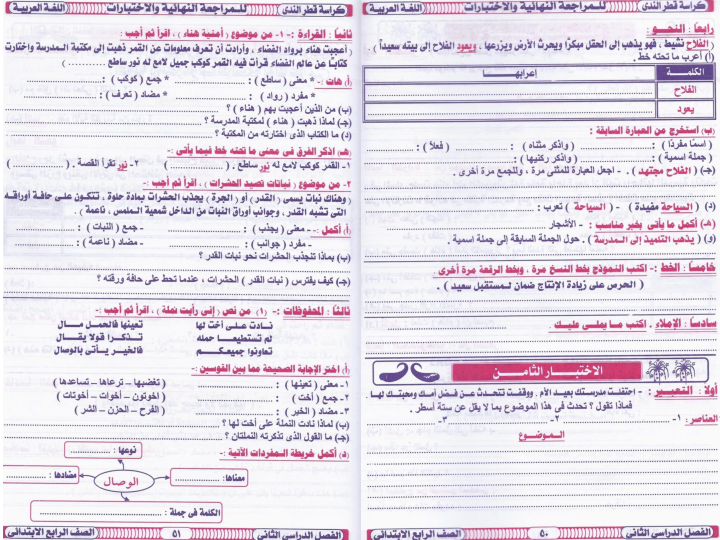 كراسة قطر الندى للمراجعة النهائية والاختبارات اللغة العربية
رابعاً : النحو :
الفلاح نشيط ، فهو يذهب إلى الحقل مبكرًا ويحرث الأرض ويزرعها ، ويعود الفلاح إلى بيته سعيداً .
(أ) أعرب ما تحته خط .
الكلمة إعرابها
الفلاح
يعود
(ب) استخرج من العبارة السابقة :
( اسمًا مفردًا ) : .......... ( واذكر مثناه ) : .......... ( فعلاً ) : ..........
( جملة اسمية ) : .......... ( واذكر ركنيها ) : ..........
(جـ) ( الفلاح مجتهد ) . - اجعل العبارة للمثنى مرة ، وللجمع مرة أخرى .
(د) ( السياحة مفيدة ) - ( السياحة ) تعرب : ..........
(هـ) أكمل ما يأتى بخبر مناسب : - الأشجار ..........
(و) ( يذهب التلميذ إلى المدرسة ) . حول الجملة السابقة إلى جملة اسمية .
خامسًا : الخط :- اكتب النموذج بخط النسخ مرة ، وبخط الرقعة مرة أخرى .
( الحرص على زيادة الإنتاج ضمان لمستقبل سعيد ) .
سادسًا : الإملاء . اكتب ما يملى عليك .
الاختبار الثامن
أولاً : التعبير : - احتفلت مدرستك بعيد الأم . ووقفت تتحدث عن فضل أمك ومحبتك لها .
فماذا تقول ؟ تحدث فى هذا الموضوع بما لا يقل عن ستة أسطر .
العناصر : ١- .......... ٢- .......... ٣- ..........
الموضوع
الفصل الدراسى الثانى ٥٠ الصف الرابع الابتدائى
كراسة قطر الندى للمراجعة النهائية والاختبارات اللغة العربية
ثانيًا : القراءة :- ١- من موضوع ( أمنية هناء ) ، اقرأ ثم أجب :
( أعجبت هناء برواد الفضاء ، وأرادت أن تعرف معلومات عن القمر ذهبت إلى مكتبة المدرسة واختارت
كتابًا عن عالم الفضاء قرأت فيه القمر كوكب جميل لامع له نور ساطع .......... )
(أ) هات :- * معنى ( ساطع ) : .......... * جمع ( كوكب ) : ..........
* مفرد ( رواد ) : .......... * مضاد ( تعرف ) : ..........
(ب) من الذين أعجبت بهم ( هناء ) ؟
(جـ) لماذا ذهبت ( هناء ) لمكتبة المدرسة ؟
(د) ما الكتاب الذى اختارته من المكتبة ؟
(هـ) اذكر الفرق فى معنى ما تحته خط فيما يأتى :-
١- القمر كوكب لامع له نور ساطع . ( .......... ) ٢- نور تقرأ القصة . ( .......... )
٢- من موضوع ( نباتات تصيد الحشرات ) ، اقرأ ثم أجب :-
( وهناك نبات يسمى ( القدر ) أو ( الجرة ) يجذب الحشرات بمادة حلوة ، تتكون على حافة أوراقه
التى تشبه القدر ، وجوانب أوراق النبات من الداخل شمعية الملمس ، ناعمة ) .
(أ) أكمل :- - معنى ( يجذب ) : .......... - جمع ( النبات ) : ..........
- مفرد ( جوانب ) : .......... - مضاد ( ناعمة ) : ..........
(ب) بماذا تنجذب الحشرات نحو نبات القدر ؟
(جـ) كيف يفترس ( نبات القدر ) الحشرات ، عندما تحط على حافة ورقته ؟
ثالثًا : المحفوظات :- (١) من نص ( إنى رأيت نملة ) ، اقرأ ثم أجب :-
نـادت على أخت لها تعينها فالحمل مـال
لم تستطيعـا حمله تـذكـرا قولا يقـال
تعاونوا جميعكـم فالخير يـأتى بالوصال
(أ) اختر الإجابة الصحيحة مما بين القوسين :-
١- معنى ( تعينها ) : .......... ( تغضبها – ترعاها – تساعدها )
٢- جمع ( أخت ) : .......... ( اخوتون – أخوات – أخوتات )
٣- مضاد ( الخير ) : .......... ( الفرح – الحزن – الشر )
(ب) لماذا نادت النملة على أخت لها ؟
(جـ) ما القول الذى تذكرته النملتان ؟
(د) أكمل خريطة المفردات الآتية :-
نوعها : ..........
معناها : ..........
الوصال
مضادها : ..........
الكلمة فى جملة : ..........
الفصل الدراسى الثانى ٥١ الصف الرابع الابتدائى